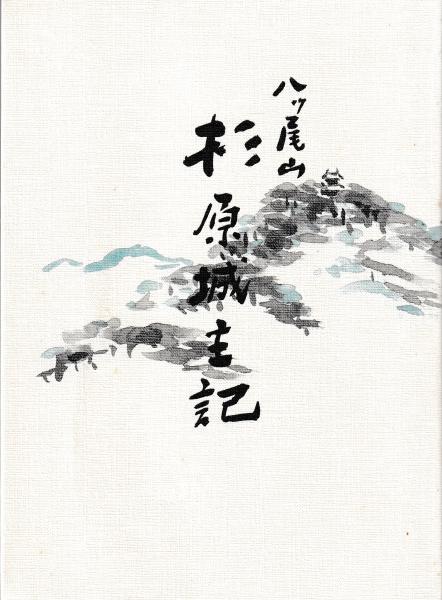 八ッ尾山
杉原城主記